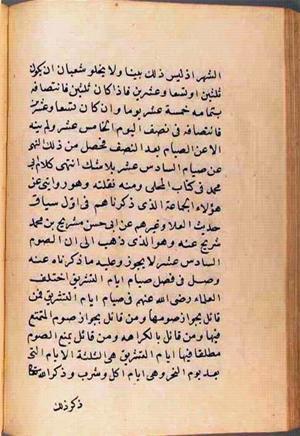 الشهر اذ ليس ذلك بينا ولا يخلو شعبان ان يكون
ثلثين او تسعا وعشرين فاذا كان ثلثين فانتصافه
بتمامه خمسة عشر يوما وان كان تسعا وعشرين
فانتصافه فى نصف اليوم الخامس عشر ولم ينه
الا عن الصيام بعد النصف فحصل من ذلك النهى
عن صيام السادس عشر بلا شك انتهى كلام ابى
محمد فى كتاب المحلى ومنه نقلته وهو روايتى عن
هؤلاء الجماعة الذى ذكرناهم فى اول سياق
حديث العلا وغيرهم عن ابى الحسن شريح بن محمد
شريح عنه وهو الذى ذهب الى ان الصوم
السادس عشر لا يجوز وعليه ما ذكرناه عنه
وصل فى فصل صيام ايام التشريق اختلف
العلماء رضى الله عنهم فى صيام ايام التشريق فمن
قائل بجواز صومها ومن قائل بجواز صوم المتمتع
فيها ومن قائل بالكراهه ومن قائل بمنع الصوم
مطلقا فيها ايام التشريق هى الثلثة الايام التى
بعد يوم النحر وهى ايام اكل وشرب وذكر الله
ذكر ذلك